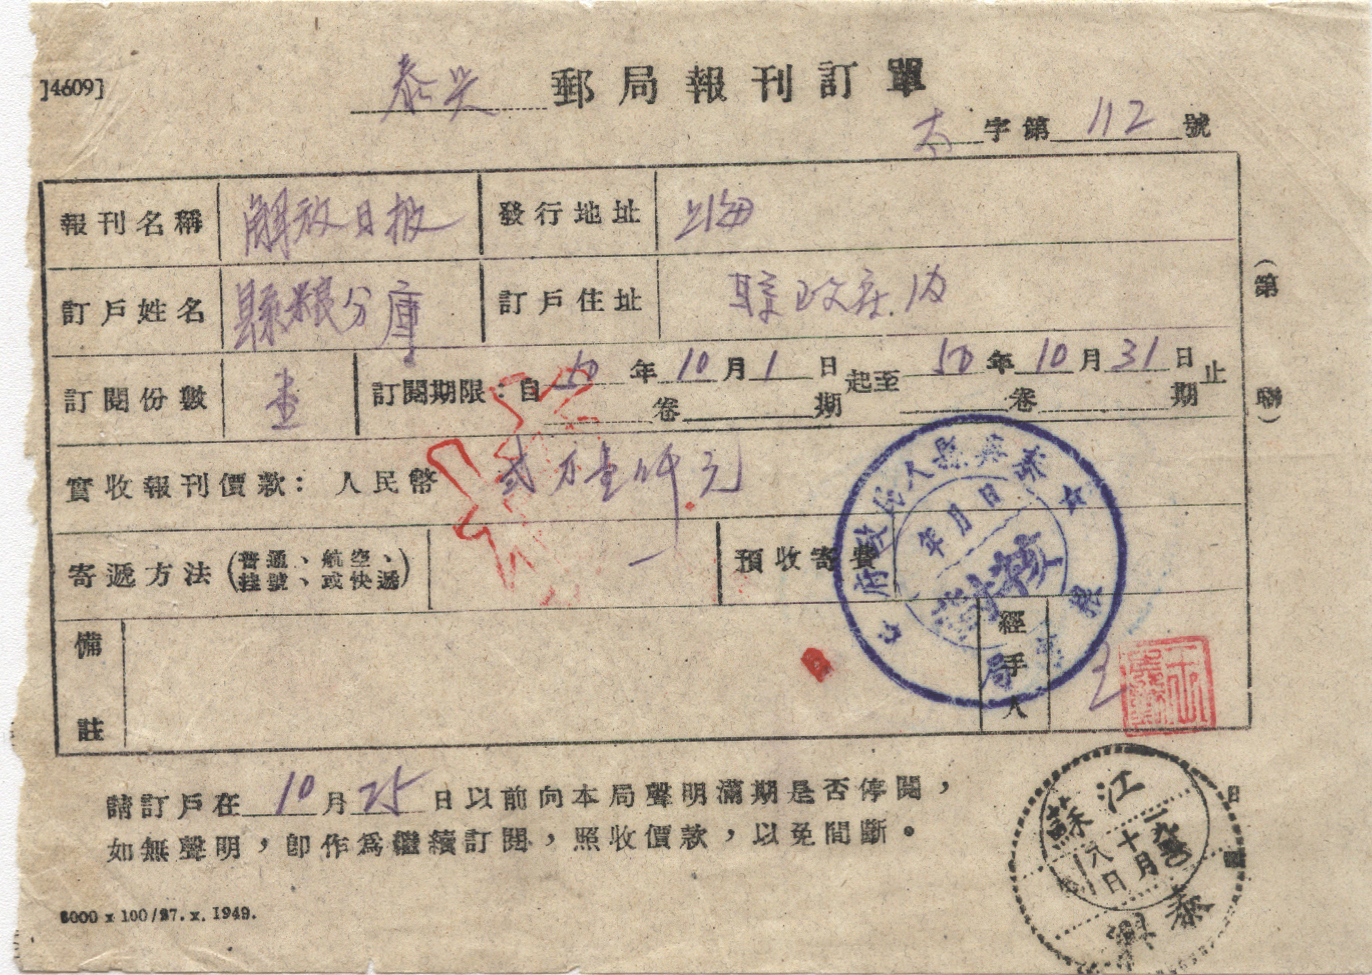 [4609]
泰兴 郵局報刊訂單
字第 112 號
報刊名稱 解放日报 發行地址 上海
訂戶姓名 縣粮分庫 訂戶住址 縣政府内
訂閱份數 壹 訂閱期限：自 50 年 10 月 1 日 起至 50 年 10 月 31 日 止
卷 期 卷 期
實收報刊價款：人民幣 弍万壹仟元
寄遞方法（普通、航空、掛號、或快遞） 預收寄費
備註
經手人 王
（第 聯）
泰興縣人民政府
年月日
局
請訂戶在 10 月 25 日以前向本局聲明滿期是否停閱，
如無聲明，卽作為繼續訂閱，照收價款，以免間斷。
江蘇
泰興
5000 x 100/27. x. 1949.